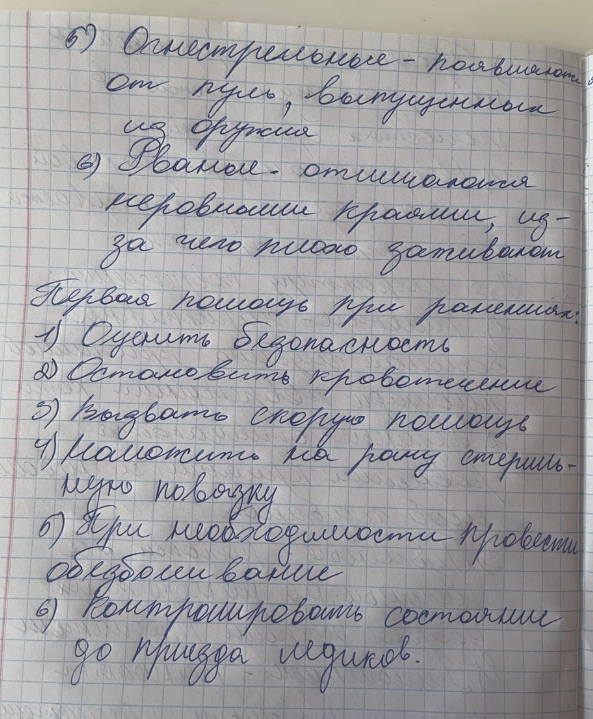 5) Огнестрельные - появляются
от пуль, выпущенных
из оружия
6) Рваные - отличаются
неровными краями, из-
за чего плохо заживают
Первая помощь при ранениях:
1) Оценить безопасность
2) Остановить кровотечение
3) Вызвать скорую помощь
4) Наложить на рану стериль-
ную повязку
5) При необходимости провести
обезболивание
6) Контролировать состояние
до приезда медиков.